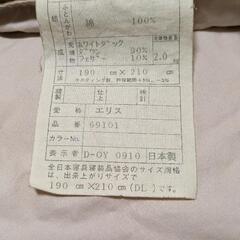 組 ふとんがわ 綿 100%
ホワイトダック
ダウン 90%
フェザー 10% 2.0
寸法 190 cm × 210 cm
縫製 仕上 検針
愛称 エリス
品番 69101
カラーNo.
表示者 D-OY 0910 日本製
全日本寝具寝装品協会のサイズ規格
は、出来上がりサイズで
190 cm×210 cm (DL) です。